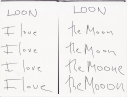 LOON LOON
I love the Moon
I love the Moon
I love the Moone
I love the MOOON